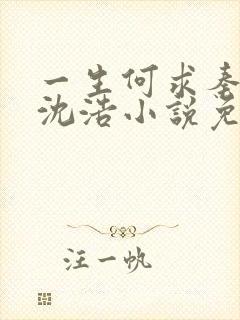 一生何求秦
沈浩小說免
汪一帆